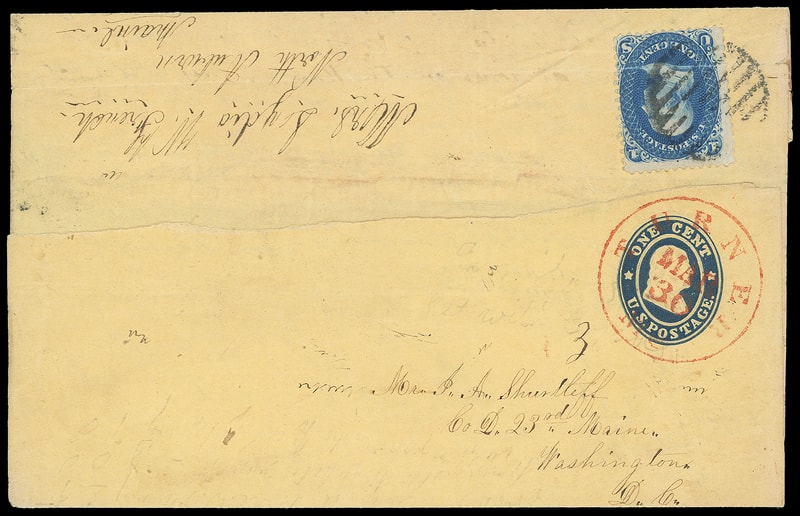 Mrs. Lydia W. French
North Auburn
Maine
U.S. POSTAGE.
ONE CENT
TURNER
MAR
30
ONE CENT
U.S. POSTAGE.
3
Mr. P. A. Shurtleff
Co D. 23rd Maine.
Washington.
D. C.